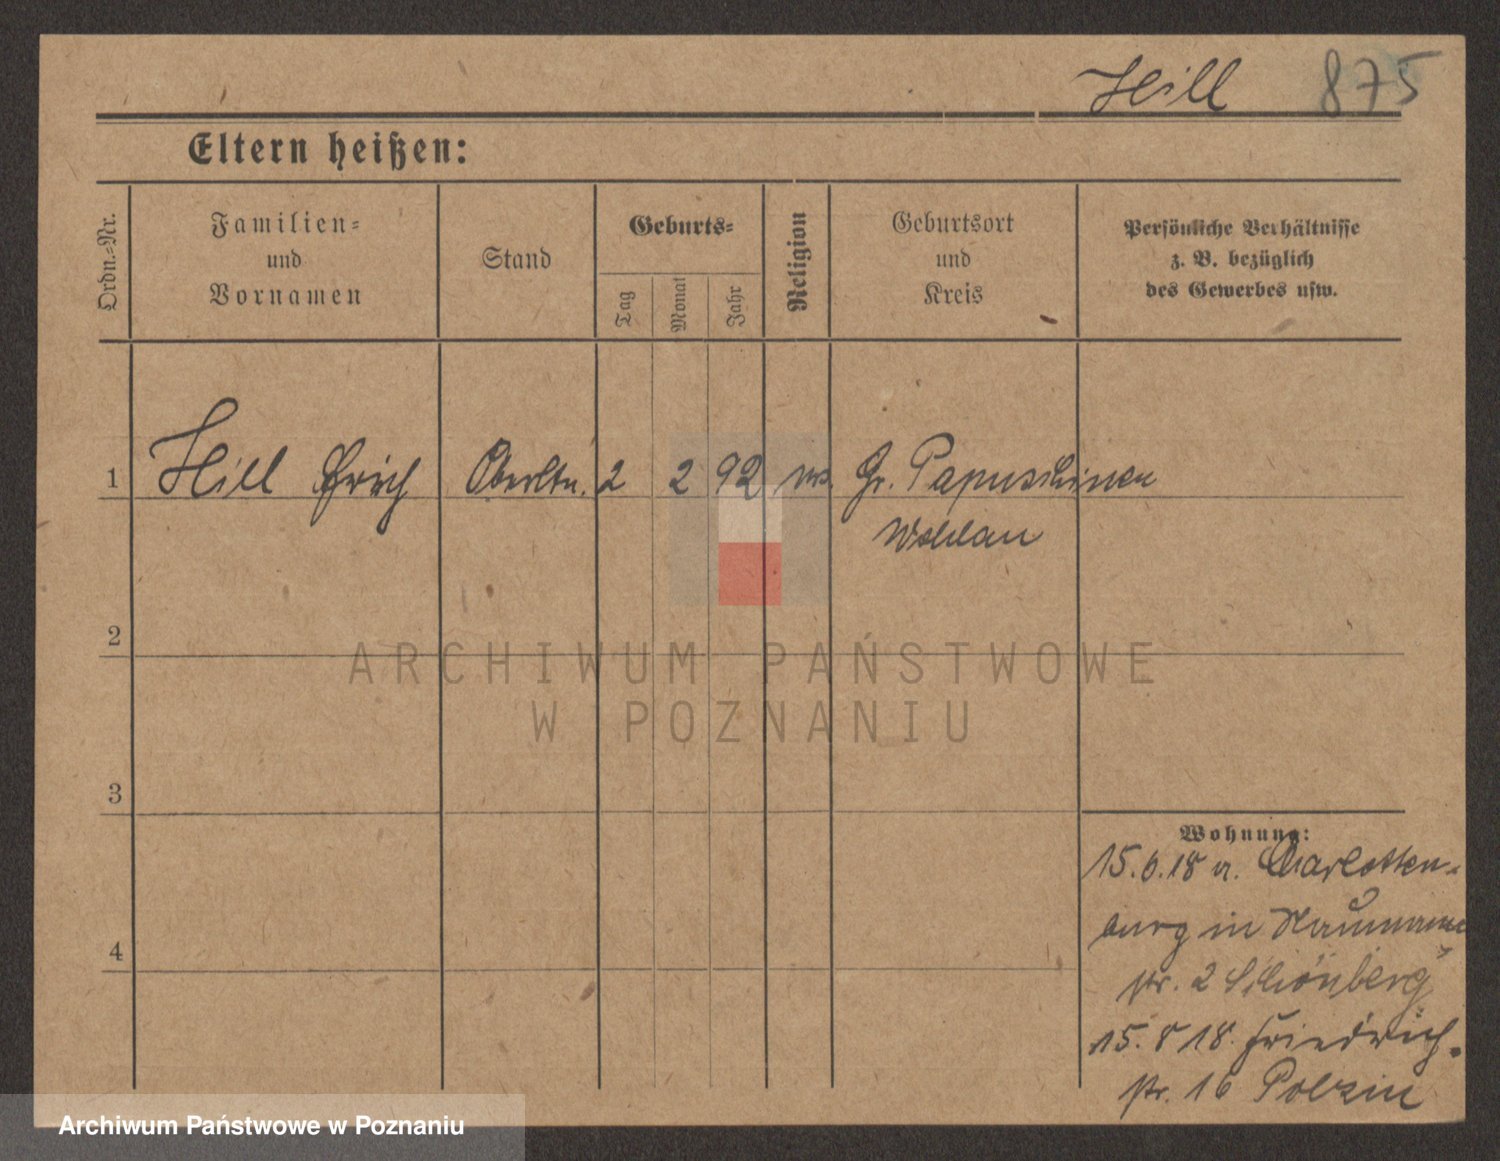 Hill 875
Eltern heißen:
Ordn.-Nr.
Familien-
und
Vornamen
Stand
Geburts-
Tag
Monat
Jahr
Religion
Geburtsort
und
Kreis
Persönliche Verhältnisse
z. B. bezüglich
des Gewerbes usw.
1 Hill Erich Oberltn. 2 2 92 Gr.
Wohlau
2
3
4
Wohnung:
15.6.18 a. Charlotten-
burg in Naumann
str. 2 Schönberg
15. 8 18. Friedrich.
str. 16 Polzin
ARCHIWUM PAŃSTWOWE
W POZNANIU
Archiwum Państwowe w Poznaniu